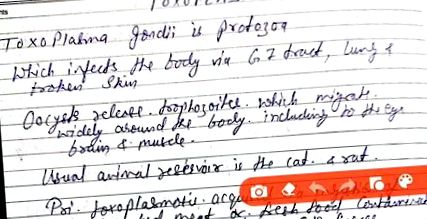 Toxoplasma gondii is protozoa
Which infects the body via G I tract, lung &
broken skin
Oocysts release trophozoites which migrate
widely around the body including to the eye
brain & muscle.
Usual animal reservoir is the cat & rat.
Pri. toxoplasmosis
meat or fresh food